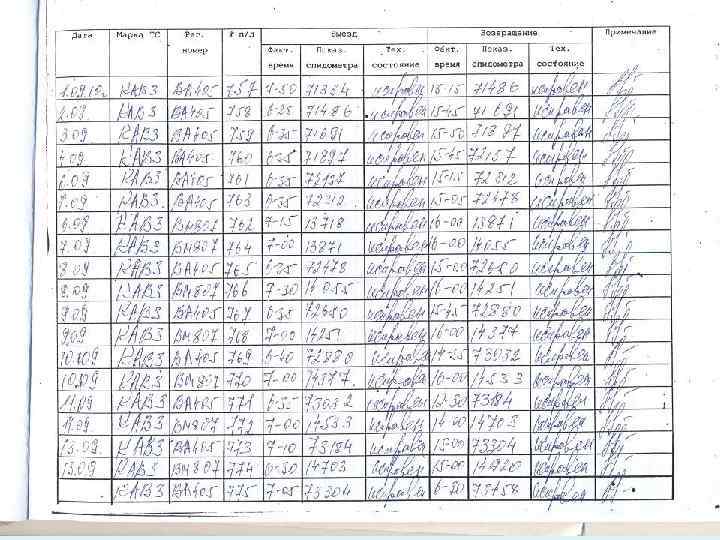 Дата Марка ТС Рег. номер № п/л Выезд Возвращение Примечание
Факт. время Показ. спидометра Тех. состояние Факт. время Показ. спидометра Тех. состояние
КАВЗ ВА405 757 71324 исправен 15-15 71486 исправен
2.09 КАВЗ ВА405 758 6-25 71486 исправен 15-45 71691 исправен
3.09 КАВЗ ВА405 759 6-35 71691 исправен 15-50 71897 исправен
4.09 КАВЗ ВА405 760 6-35 71897 исправен 15-45 72137 исправен
КАВЗ ВА405 761 6-35 72137 исправен 15-15 исправен
КАВЗ ВА405 763 6-35 исправен 15-05 72478 исправен
6.09 КАВЗ ВМ807 762 7-15 13718 исправен 16-00 13871 исправен
7.09 КАВЗ ВМ807 764 7-00 13871 исправен 16-00 14055 исправен
8.09 КАВЗ ВА405 765 6-35 72478 исправен 15-00 72650 исправен
8.09 КАВЗ ВМ807 766 7-30 14055 исправен 16-00 14251 исправен
9.09 КАВЗ ВА405 767 6-35 72650 исправен 15-45 72880 исправен
9.09 КАВЗ ВМ807 768 7-00 14251 исправен 16-00 14377 исправен
10.09 КАВЗ ВА405 769 6-40 72880 исправен 14-25 73032 исправен
10.09 КАВЗ ВМ807 770 7-00 14377 исправен 16-00 14533 исправен
11.09 КАВЗ ВА405 771 6-35 73032 исправен 15-30 73184 исправен
11.09 КАВЗ ВМ807 772 7-00 14533 исправен 14-00 14703 исправен
13.09 КАВЗ ВА405 773 7-10 73184 исправен 15-00 73304 исправен
13.09 КАВЗ ВМ807 774 6-50 14703 исправен 15-00 14920 исправен
КАВЗ ВА405 775 7-05 73304 исправен исправен